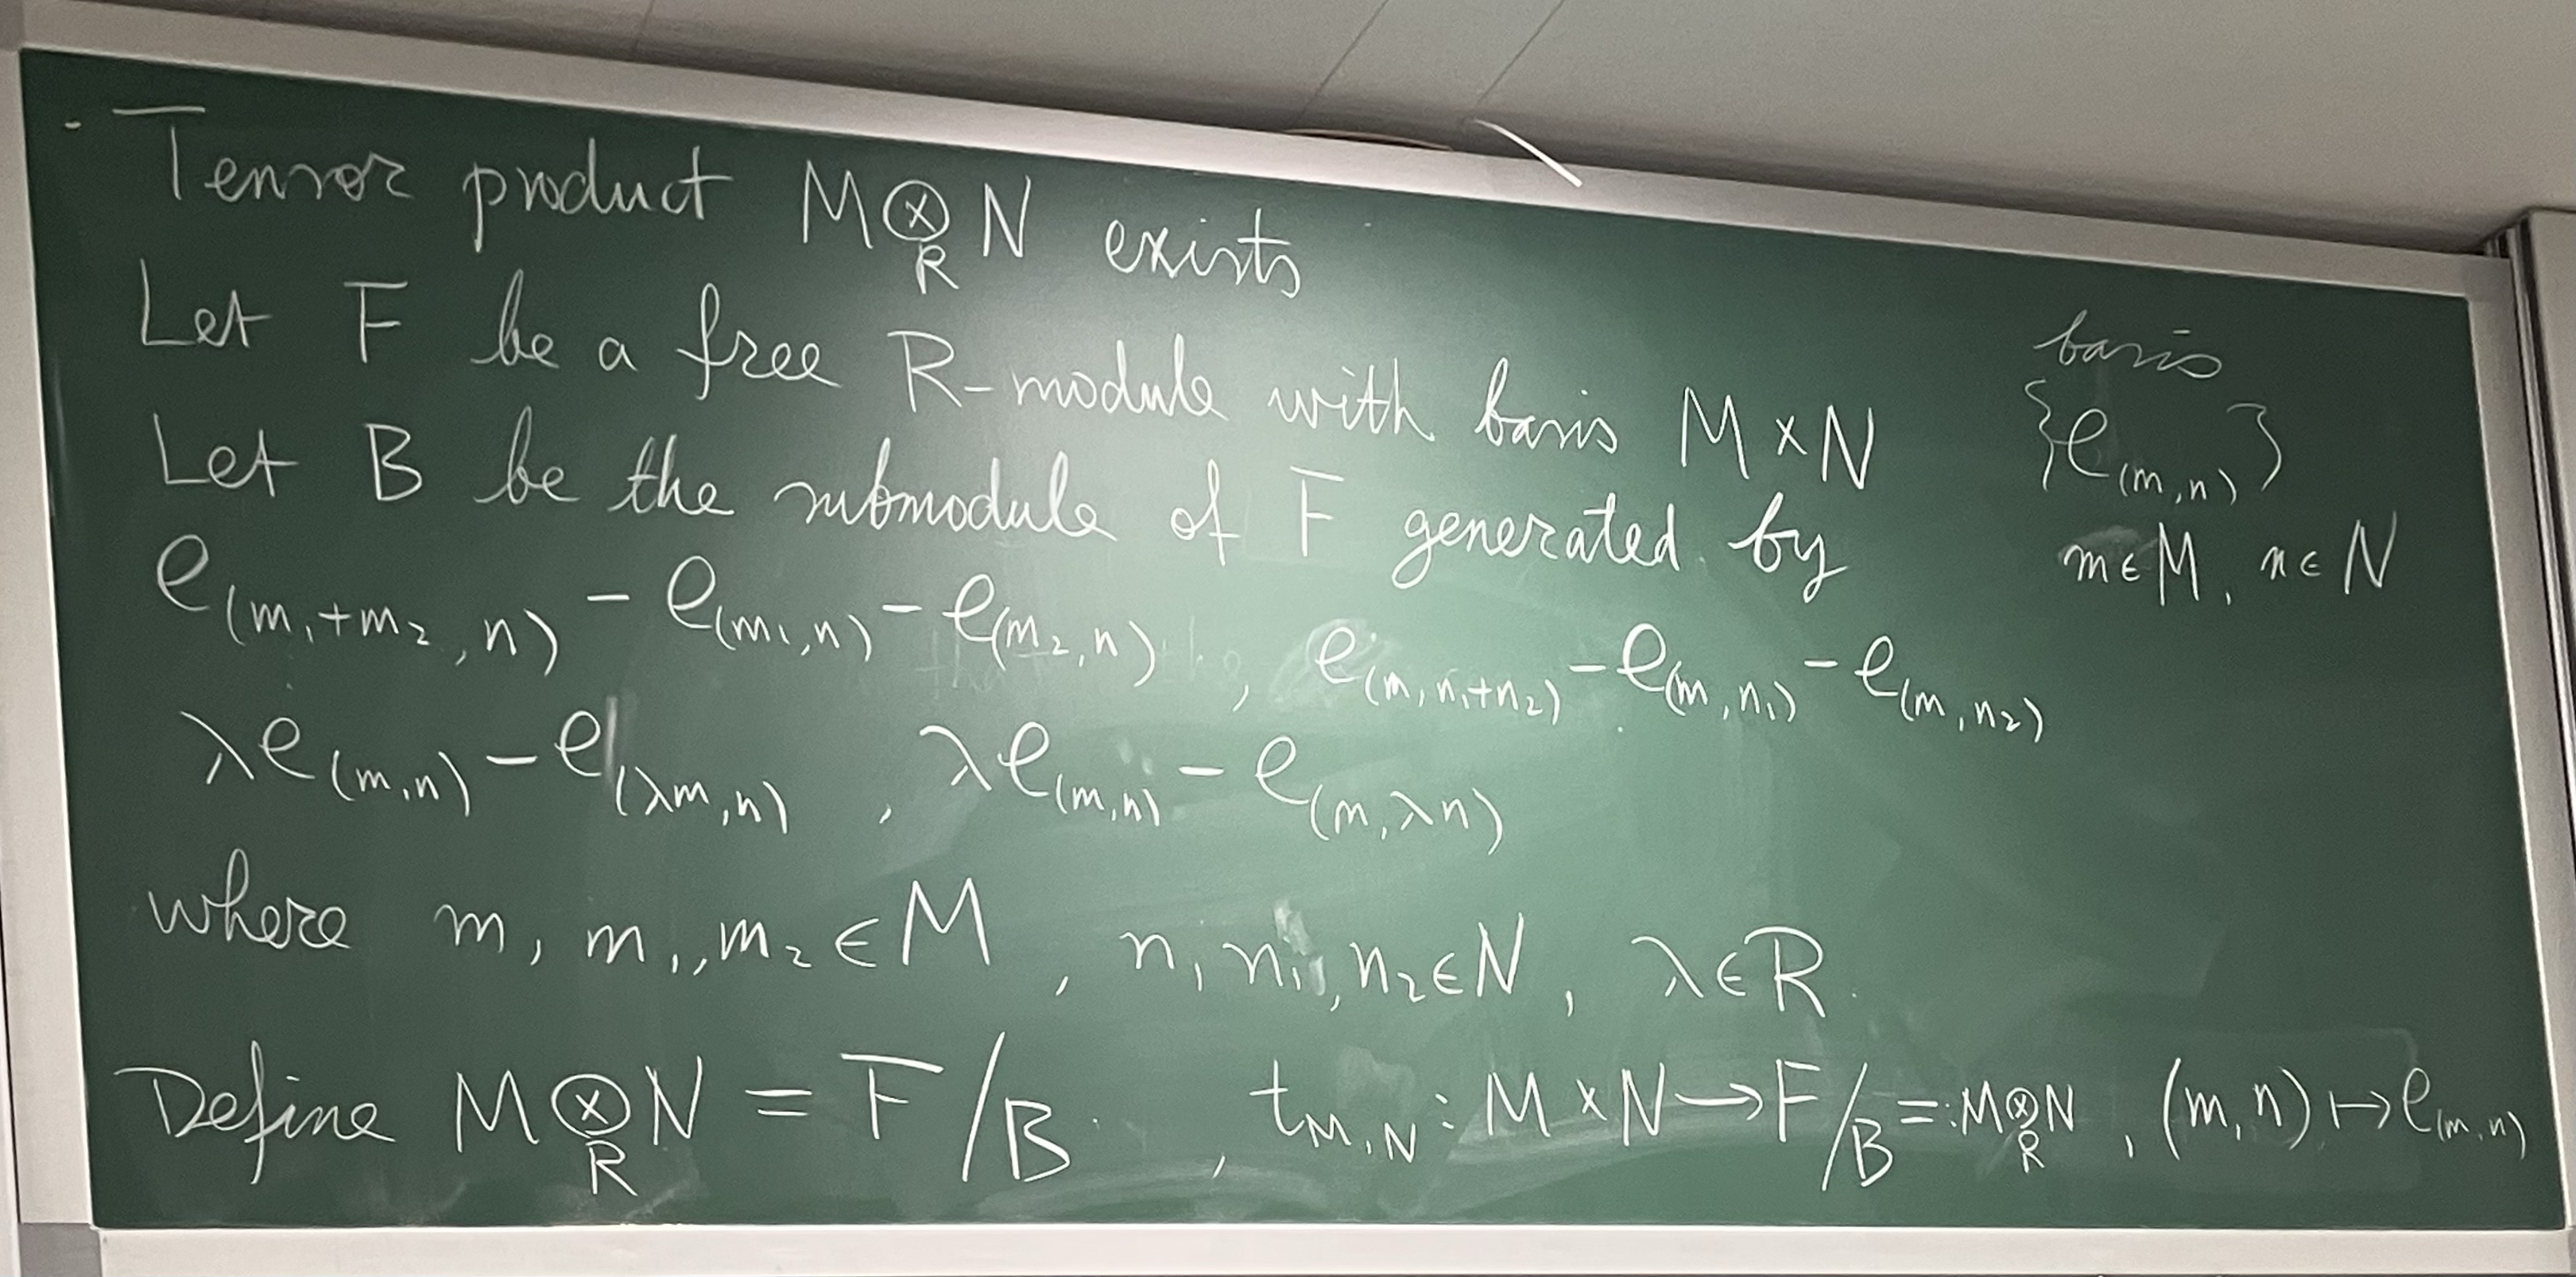 Tensor product M ⊗_R N exists
Let F be a free R-module with basis M × N
basis
{e_(m,n)}
m ∈ M, n ∈ N
Let B be the submodule of F generated by
e_(m₁+m₂,n) − e_(m₁,n) − e_(m₂,n) , e_(m,n₁+n₂) − e_(m,n₁) − e_(m,n₂)
λe_(m,n) − e_(λm,n) , λe_(m,n) − e_(m,λn)
where m, m₁, m₂ ∈ M , n, n₁, n₂ ∈ N , λ ∈ R.
Define M ⊗_R N = F/B , t_M,N : M × N → F/B =: M ⊗_R N , (m,n) ↦ e_(m,n)